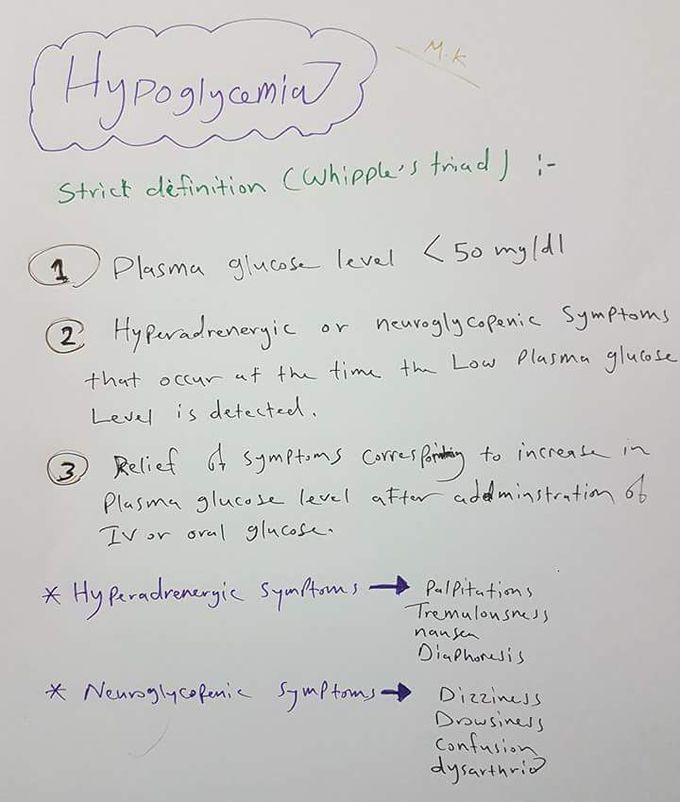 Hypoglycemia
M.K
Strict definition (Whipple's triad) :-
1 Plasma glucose level < 50 mg/dl
2 Hyperadrenergic or neuroglycopenic symptoms
that occur at the time the Low plasma glucose
Level is detected.
3 Relief of symptoms corresponding to increase in
plasma glucose level after addminstration of
IV or oral glucose.
* Hyperadrenergic symptoms → Palpitations
Tremulousness
nausea
Diaphoresis
* Neuroglycopenic symptoms → Dizziness
Drowsiness
confusion
dysarthria